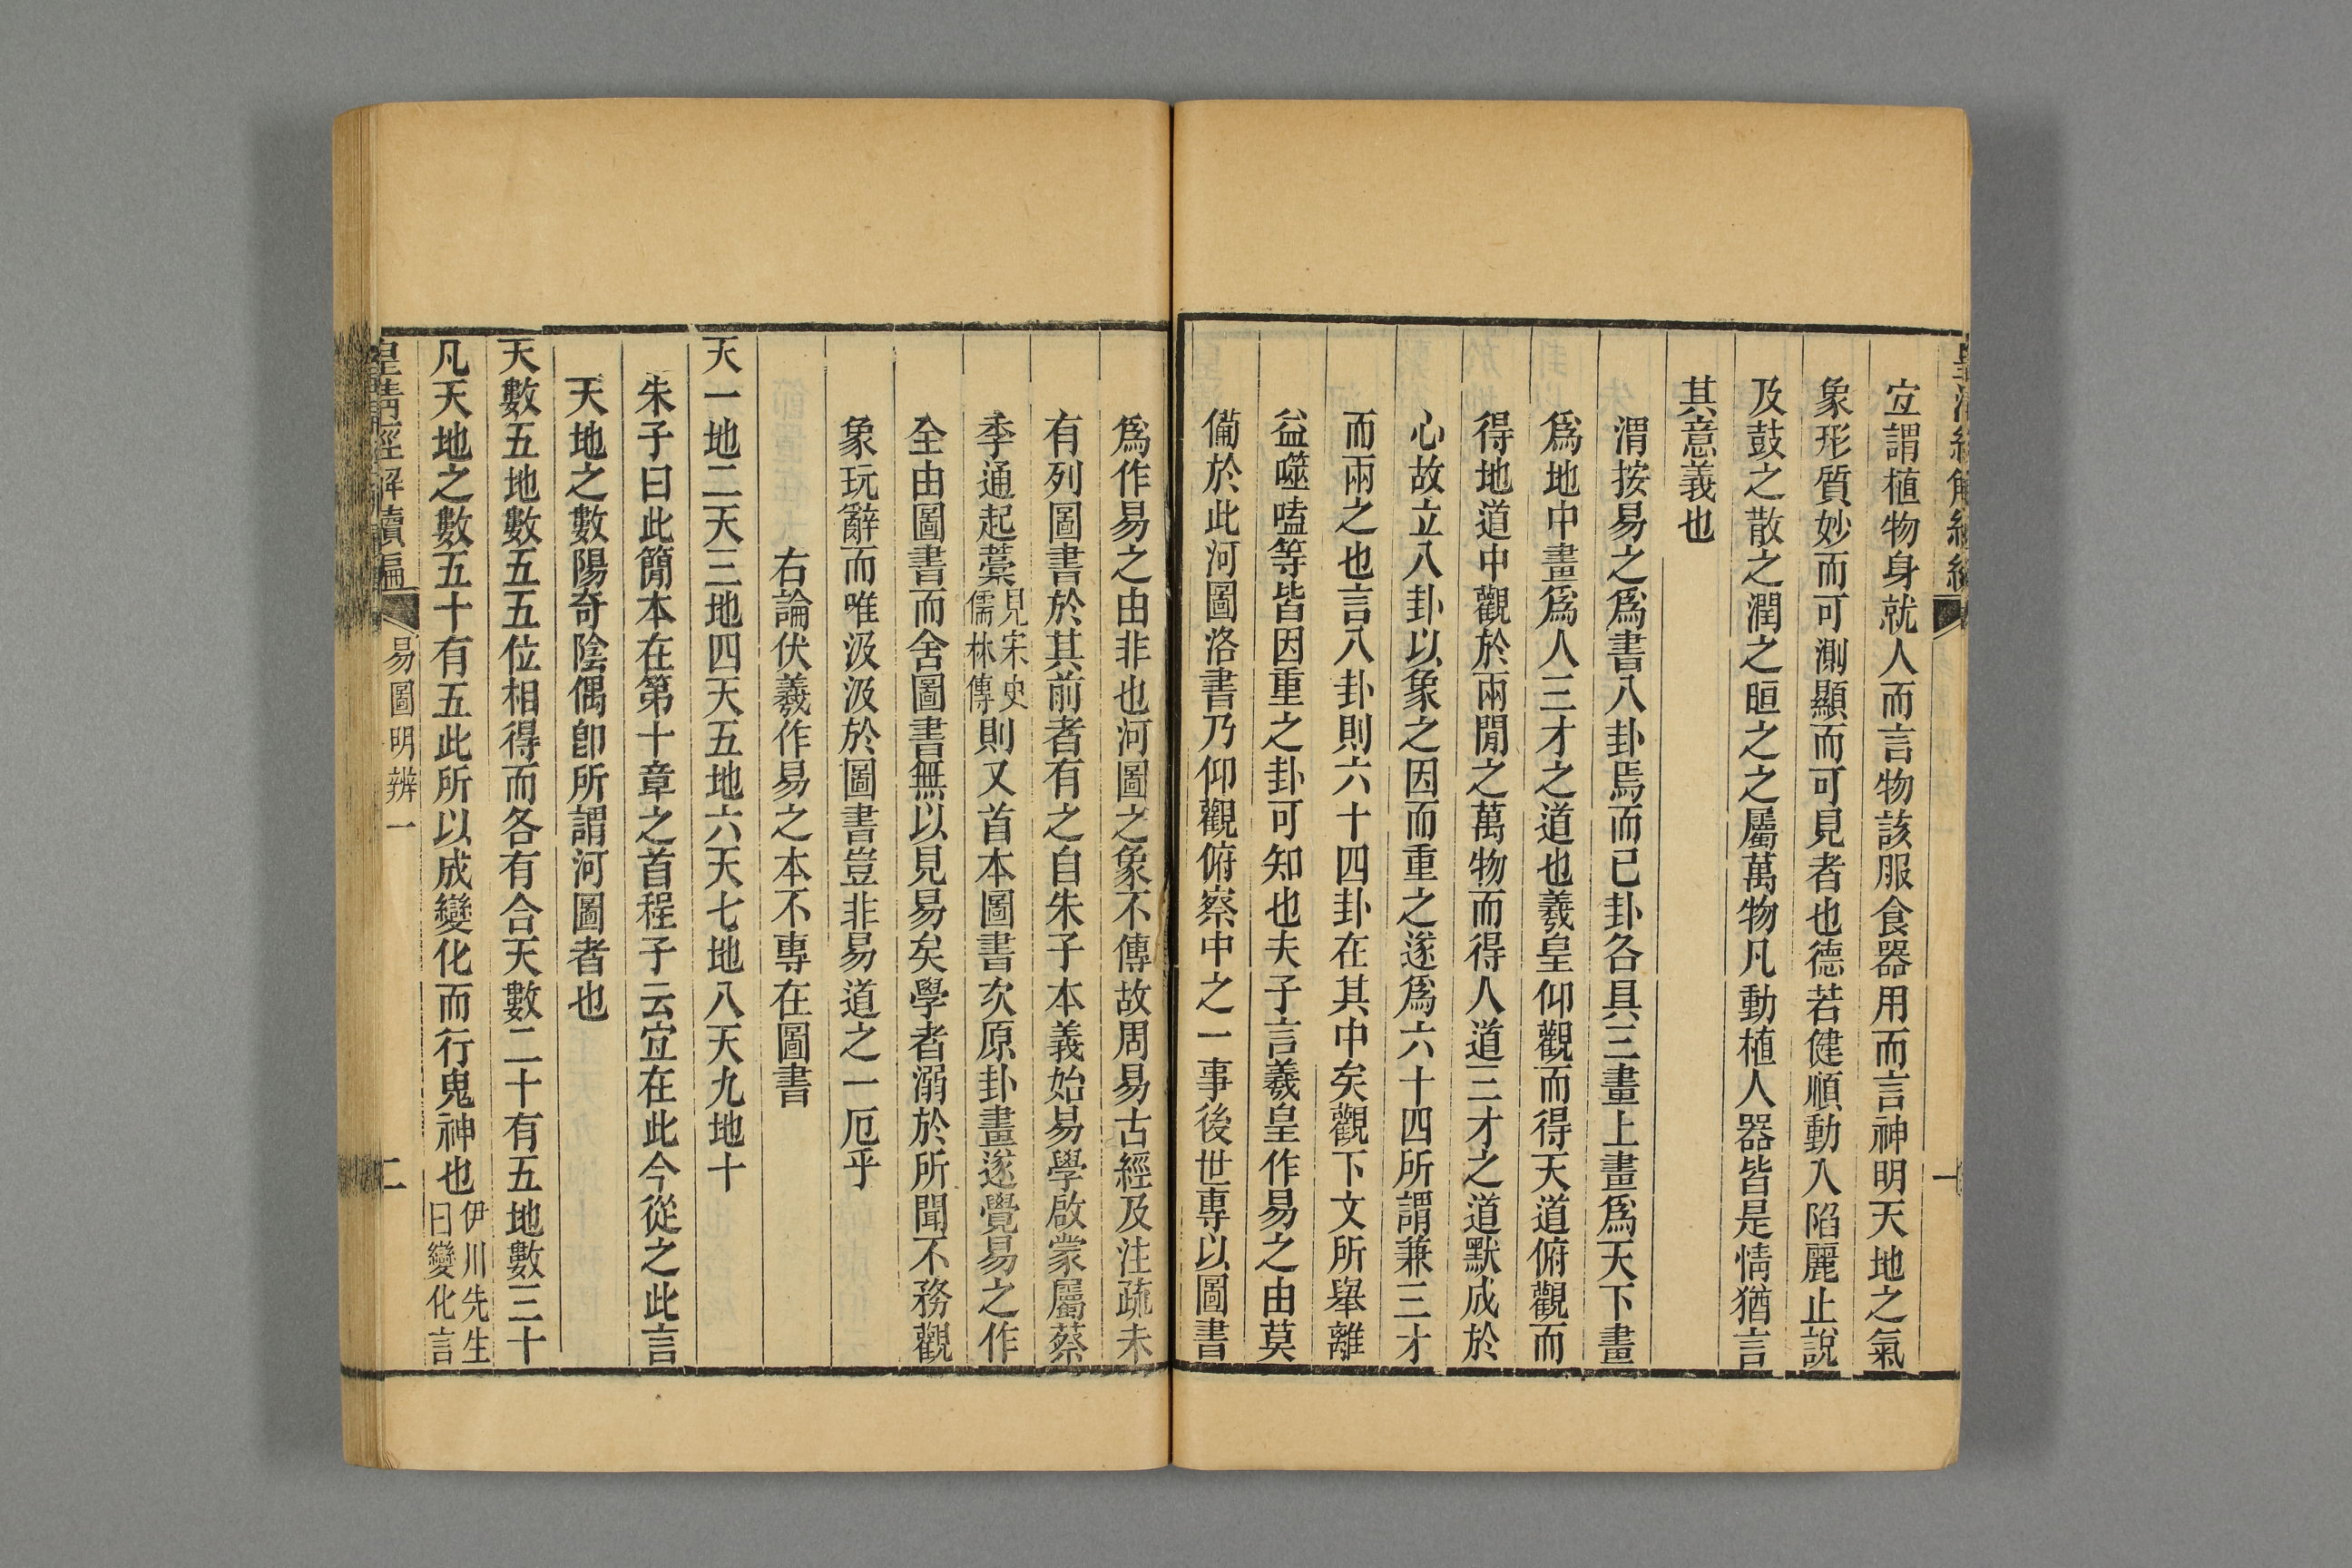 宜謂植物身就人而言物該服食器用而言神明天地之氣
象形質妙而可測顯而可見者也德若健順動入陷麗止說
及鼓之散之潤之晅之之屬萬物凡動植人器皆是情猶言
其意義也
渭按易之爲書八卦焉而已卦各具三畫上畫爲天下畫
爲地中畫爲人三才之道也羲皇仰觀而得天道俯觀而
得地道中觀於兩閒之萬物而得人道三才之道默成於
心故立八卦以象之因而重之遂爲六十四所謂兼三才
而兩之也言八卦則六十四卦在其中矣觀下文所舉離
益噬嗑等皆因重之卦可知也夫子言羲皇作易之由莫
備於此河圖洛書乃仰觀俯察中之一事後世專以圖書
爲作易之由非也河圖之象不傳故周易古經及注疏未
有列圖書於其前者有之自朱子本義始易學啟蒙屬蔡
季通起藁見宋史儒林傳則又首本圖書次原卦畫遂覺易之作
全由圖書而舍圖書無以見易矣學者溺於所聞不務觀
象玩辭而唯汲汲於圖書豈非易道之一厄乎
右論伏羲作易之本不專在圖書
天一地二天三地四天五地六天七地八天九地十
朱子曰此簡本在第十章之首程子云宜在此今從之此言
天地之數陽奇陰偶卽所謂河圖者也
天數五地數五五位相得而各有合天數二十有五地數三十
凡天地之數五十有五此所以成變化而行鬼神也伊川先生曰變化言
皇清經解續編
易圖明辨一
二